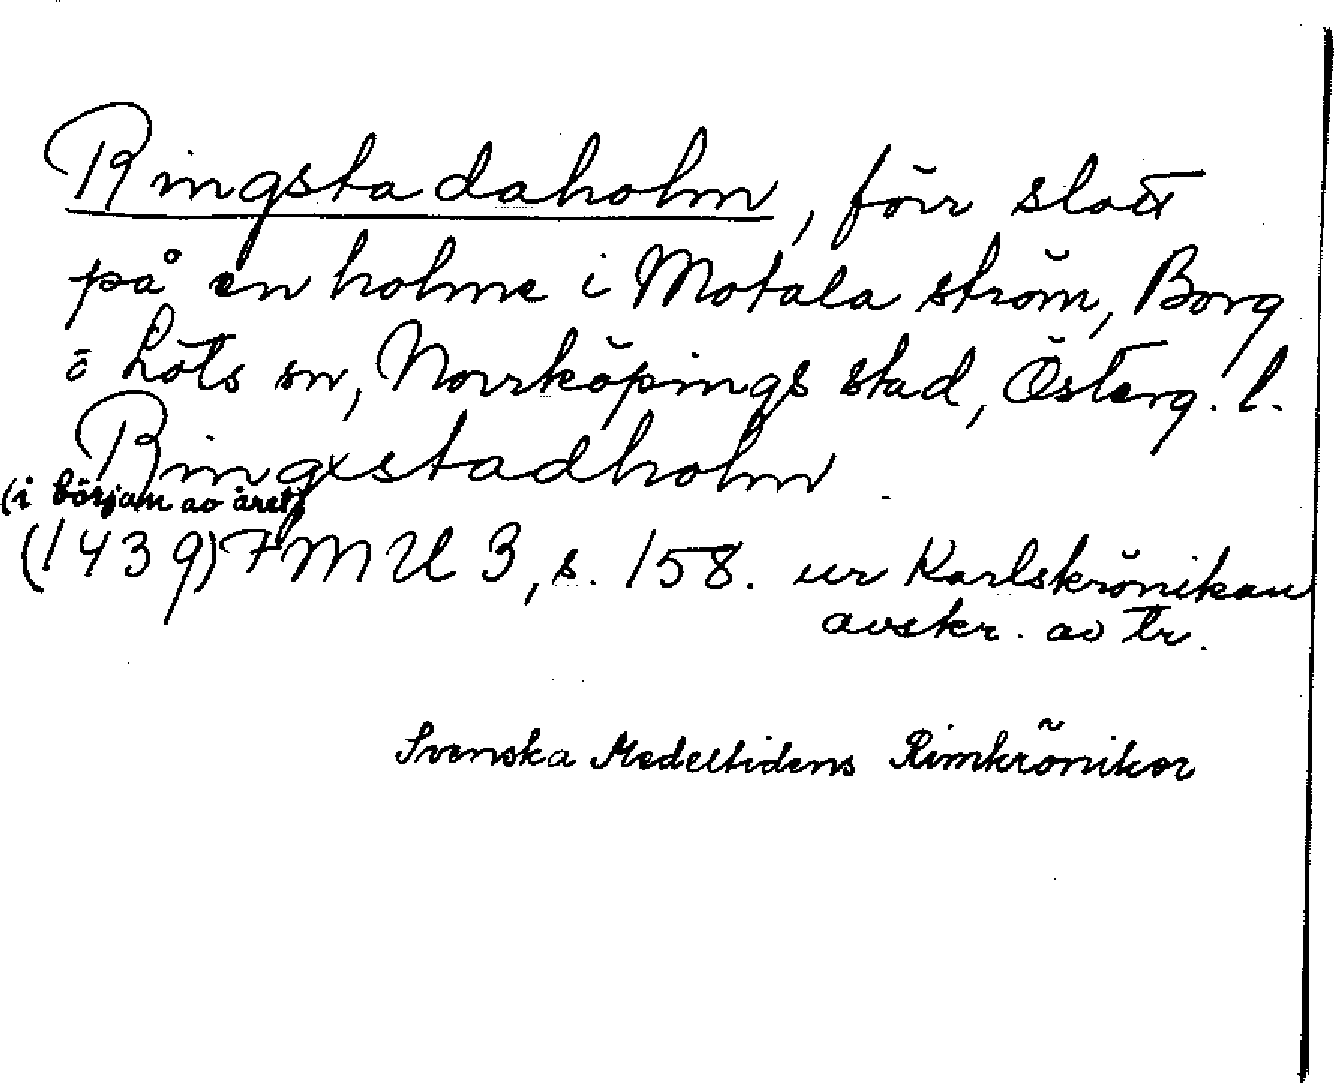 Ringstadaholm, förr slott
på en holme i Motala ström, Borg
o Löts sn, Norrköpings stad, Österg. l.
Ringxstadholm
(i början av året)
(1439) FMU 3, s. 158. ur Karlskrönikan
avskr. av tr.
Svenska Medeltidens Rimkrönikor